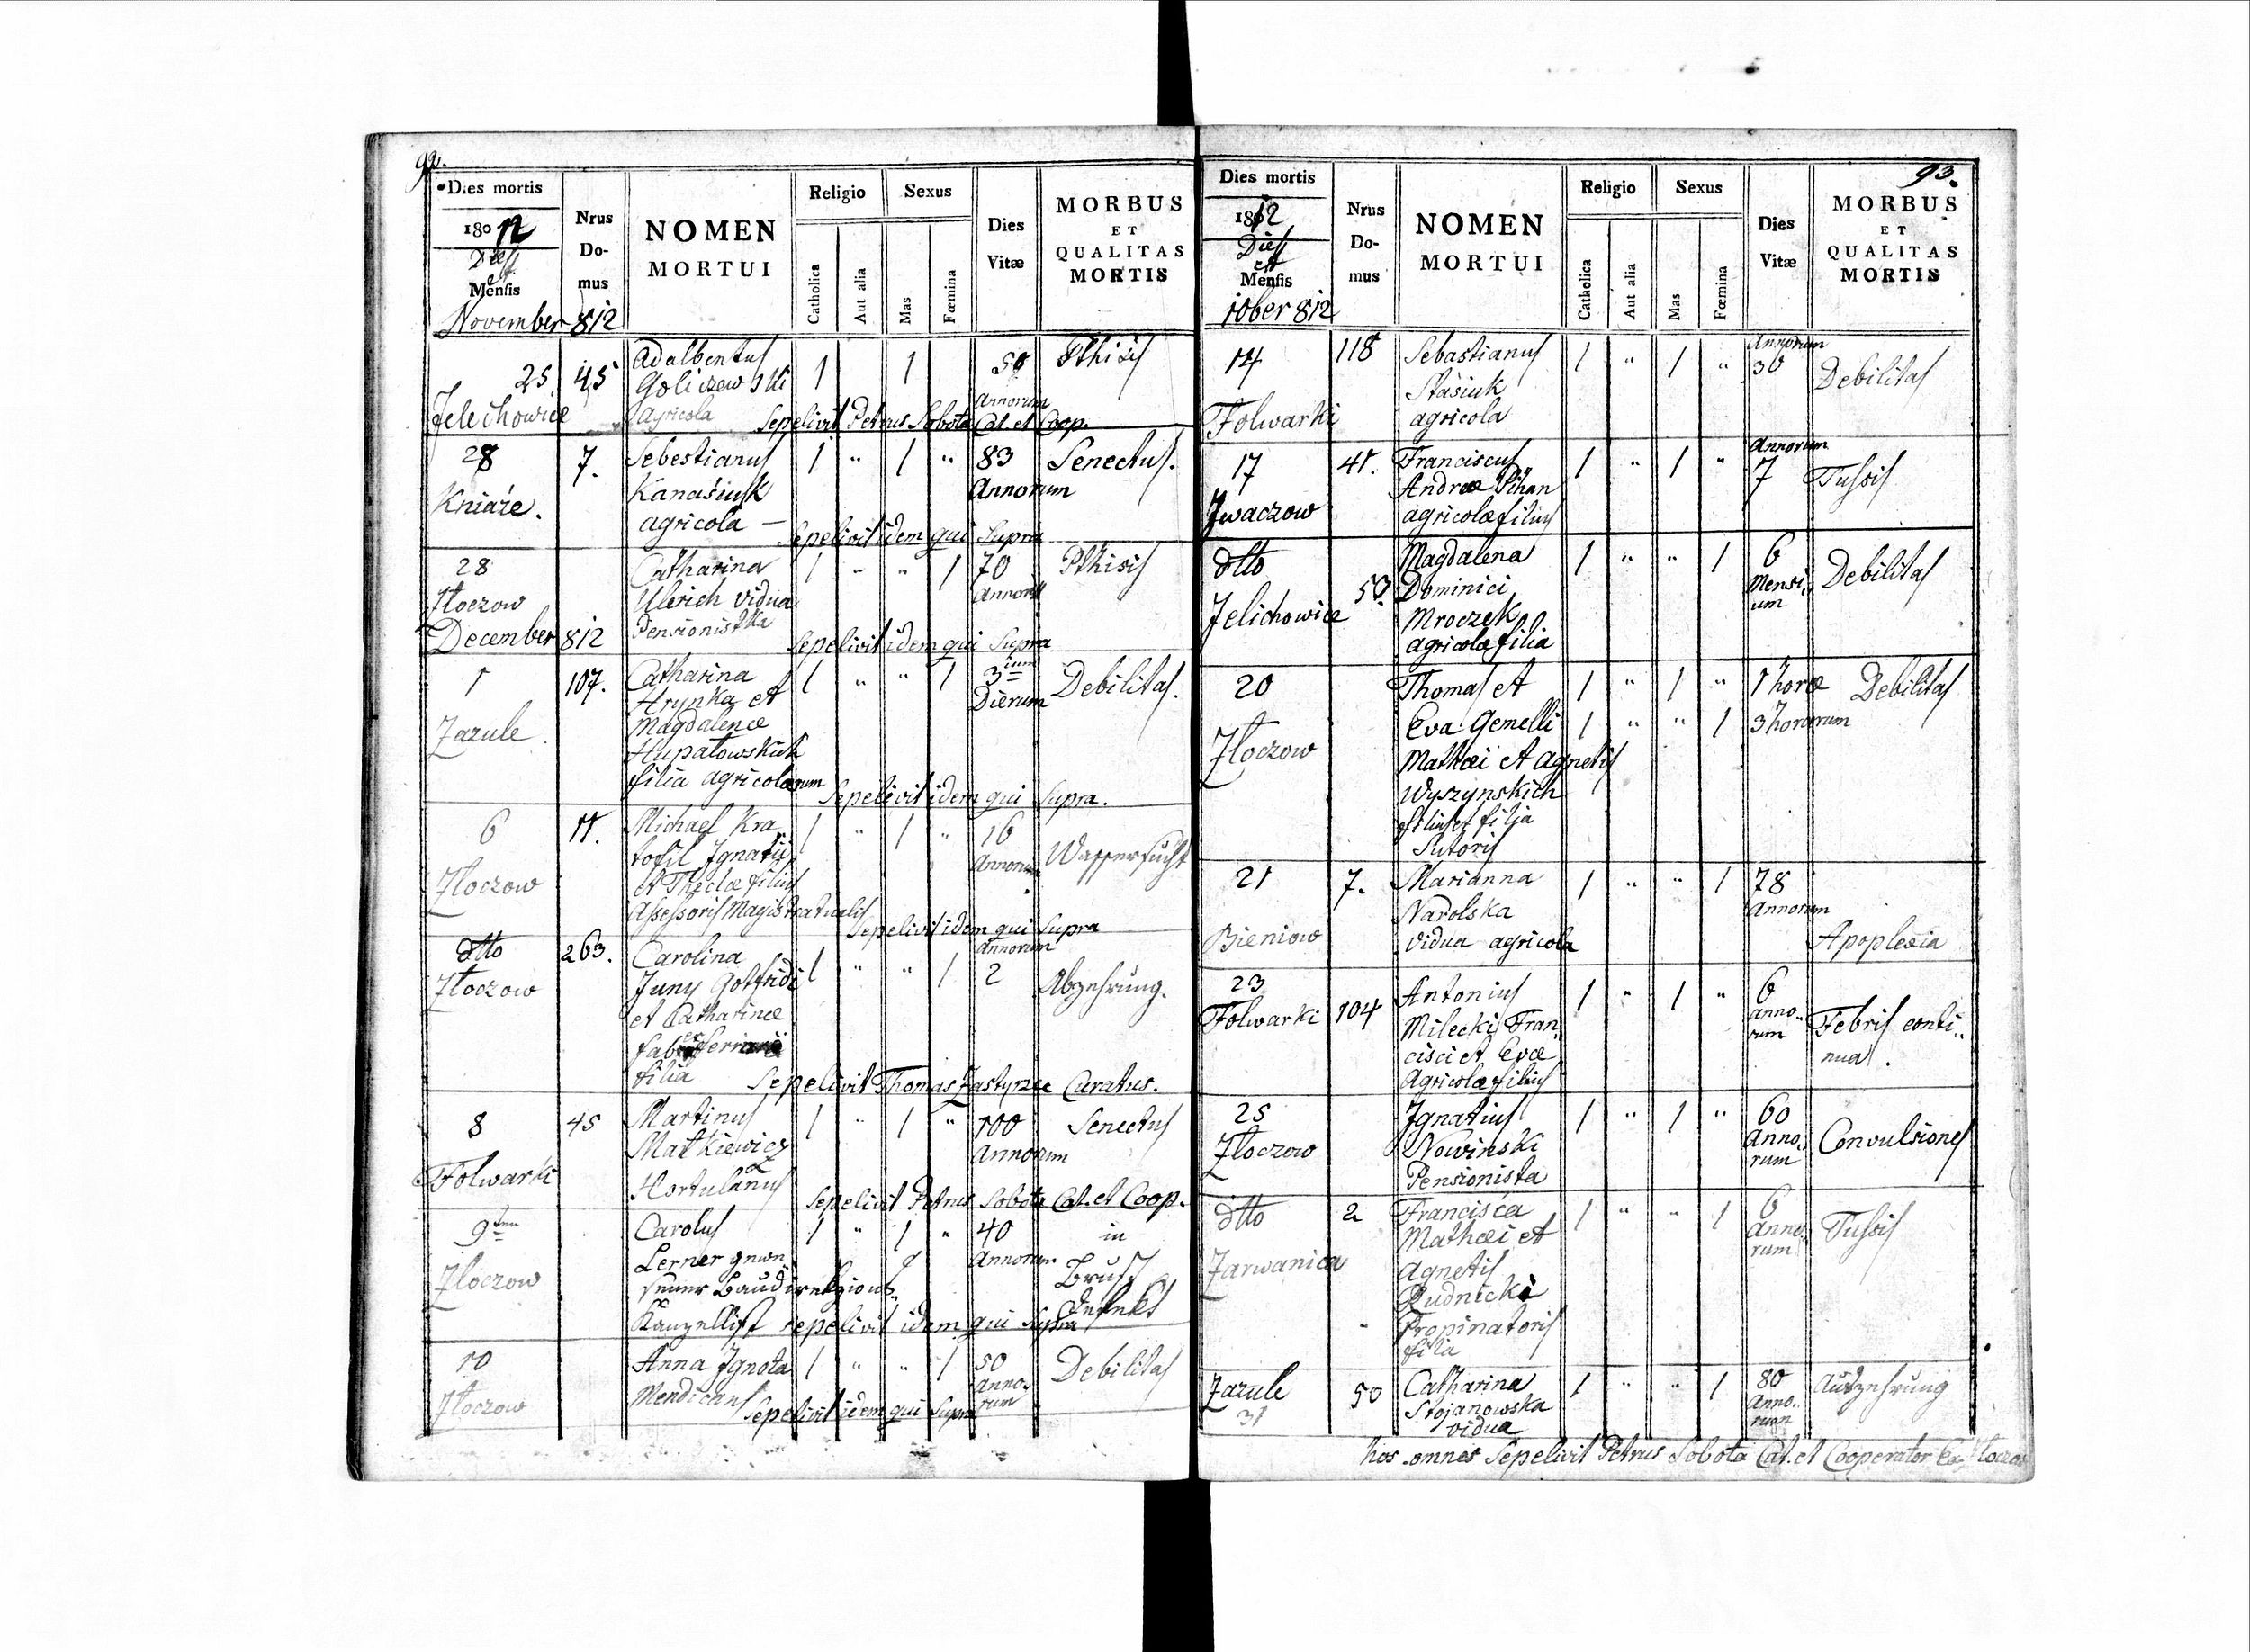 92.
Dies mortis
1812
Dies
et
Mensis
November 812
Nrus
Do-
mus
NOMEN
MORTUI
Religio
Catholica
Aut alia
Sexus
Mas
Fœmina
Dies
Vitæ
MORBUS
ET
QUALITAS
MORTIS
25 45 Adalbertus 1 1 50 Pthisis
Jelechowice Goliczewski Annorum
agricola Sepelivit Petrus Sobota Cat. et Coop.
28 7. Sebestianus 1 " 1 " 83 Senectus.
Kniaże. Kanasiuk Annorum
agricola — Sepelivit idem qui Supra
28 Catharina 1 " " 1 70 Pthisis
Złoczow Ulerich vidua Annorum
Pensionistka Sepelivit idem qui Supra
December 812
1 107. Catharina 1 " " 1 3ium Debilitas.
Zazule Hrynka et Dierum
Magdalenæ
Hupałowskich
filia agricolarum Sepelivit idem qui Supra.
6 11. Michael Kra 1 " 1 " 16 Wassersucht
Złoczow tofil Jgnatii Annorum
et Theclæ filius
Assessoris Magistratualis
Sepelivit idem qui Supra
dtto 263. Carolina 1 " " 1 Annorum 2 Abzehrung.
Złoczow Juny Gotfridi
et Catharinæ
filia Sepelivit Thomas Zastyrzec Curatus.
8 45 Martinus 1 " 1 " 100 Senectus
Folwarki Matkiewicz Annorum
Hortulanus Sepelivit Petrus Sobota Cat. et Coop.
9ten Carolus 1 " 1 " 40 in
Złoczow Lerner gewe Annorum Brust
sener Baudirekzions Defekt
Kanzellist sepelivit idem qui Supra
10 Anna Jgnota 1 " " 1 50 Debilitas
Złoczow Mendicans Annorum
Sepelivit idem qui Supra
93.
Dies mortis
1812
Dies
et
Mensis
10ber 812
Nrus
Do-
mus
NOMEN
MORTUI
Religio
Catholica
Aut alia
Sexus
Mas
Fœmina
Dies
Vitæ
MORBUS
ET
QUALITAS
MORTIS
14 118 Sebastianus 1 " 1 " Annorum 30 Debilitas
Folwarki Stasiuk
agricola
17 41. Franciscus 1 " 1 " Annorum 7 Tussis
Jwaczow Andreæ Pihan
agricolæ filius
dtto 53. Magdalena 1 " " 1 6 Debilitas
Jelichowice Dominici Mensi
Mroczek um
agricolæ filia
20 Thomas et 1 " 1 " 1 horæ Debilitas
Złoczow Eva Gemelli 1 " " 1 3 horarum
Mathæi et Agnetis
Wyszynskich
filius et filia
Sutoris
21 7. Marianna 1 " " 1 78
Bieniow Narolska Annorum
vidua agricola Apoplexia
23 104 Antonius 1 " 1 " 6 Febris conti
Folwarki Milecki Fran anno nua.
cisci et Evæ rum
Agricolæ filius
25 Jgnatius 1 " 1 " 60 Convulsiones
Złoczow Nowinski Anno
Pensionista rum
dtto 2 Francisca 1 " " 1 6 Tussis
Zarwanica Mathæi et Anno
Agnetis rum
Rudnicki
Propinatoris
filia
Zazule 50 Catharina 1 " " 1 80 Auszehrung
31 Stojanowska Anno
vidua rum
hos omnes Sepelivit Petrus Sobota Cat. et Cooperator